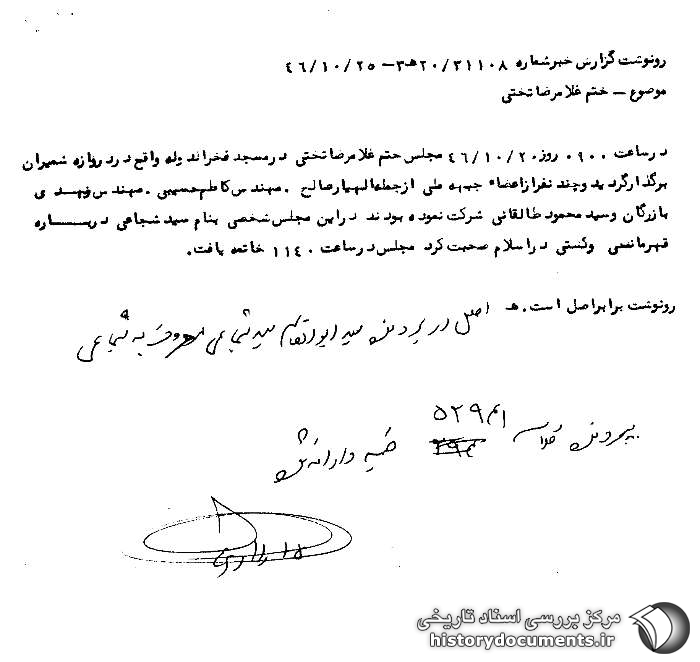 رونوشت گزارش خبر شماره ۲۰/۲۱۱۰۸ھ۳ – ۴۶/۱۰/۲۵
موضوع – ختم غلامرضا تختی
در ساعت ۰۹۰۰ روز ۴۶/۱۰/۲۰ مجلس ختم غلامرضا تختی در مسجد فخرالدوله واقع در دروازه شمیران
برگذار گردید و چند نفر از اعضاء جبهه ملی از جمله الهیار صالح . مهندس کاظم حسیبی . مهندس مهدی
بازرگان و سید محمود طالقانی شرکت نموده بودند در این مجلس شخصی بنام سید شجاعی در باره
قهرمانی و کشتی در اسلام صحبت کرد مجلس در ساعت ۱۱۴۰ خاتمه یافت.
رونوشت برابر اصل است. ھ
اصل در پرونده سید ابوالقاسم سید شجاعی معروف به شجاعی
پرونده کلاسه
۵۲۹
ضمیمه و ارائه شد
مرکز بررسی اسناد تاریخی
historydocuments.ir